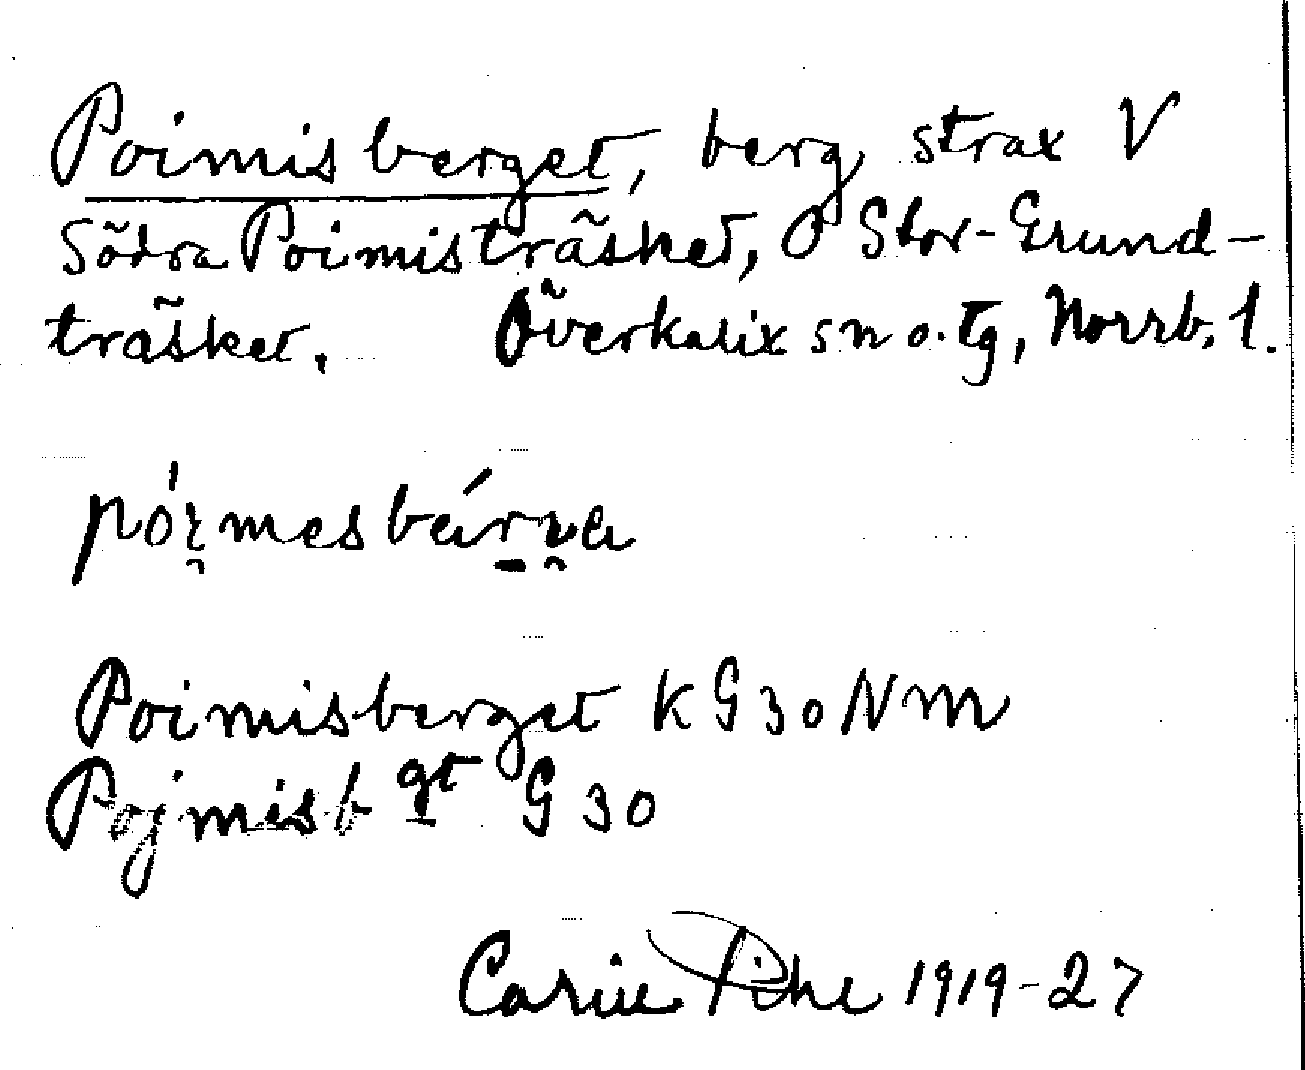 Poimisberget, berg strax V
Södra Poimisträsket, O Stor-Grund-
träsket. Överkalix sn o. tg, Norrb. l.
Poimisberget K G 30 N m
Pojmisb gt G 30
Carin Pihl 1919-27